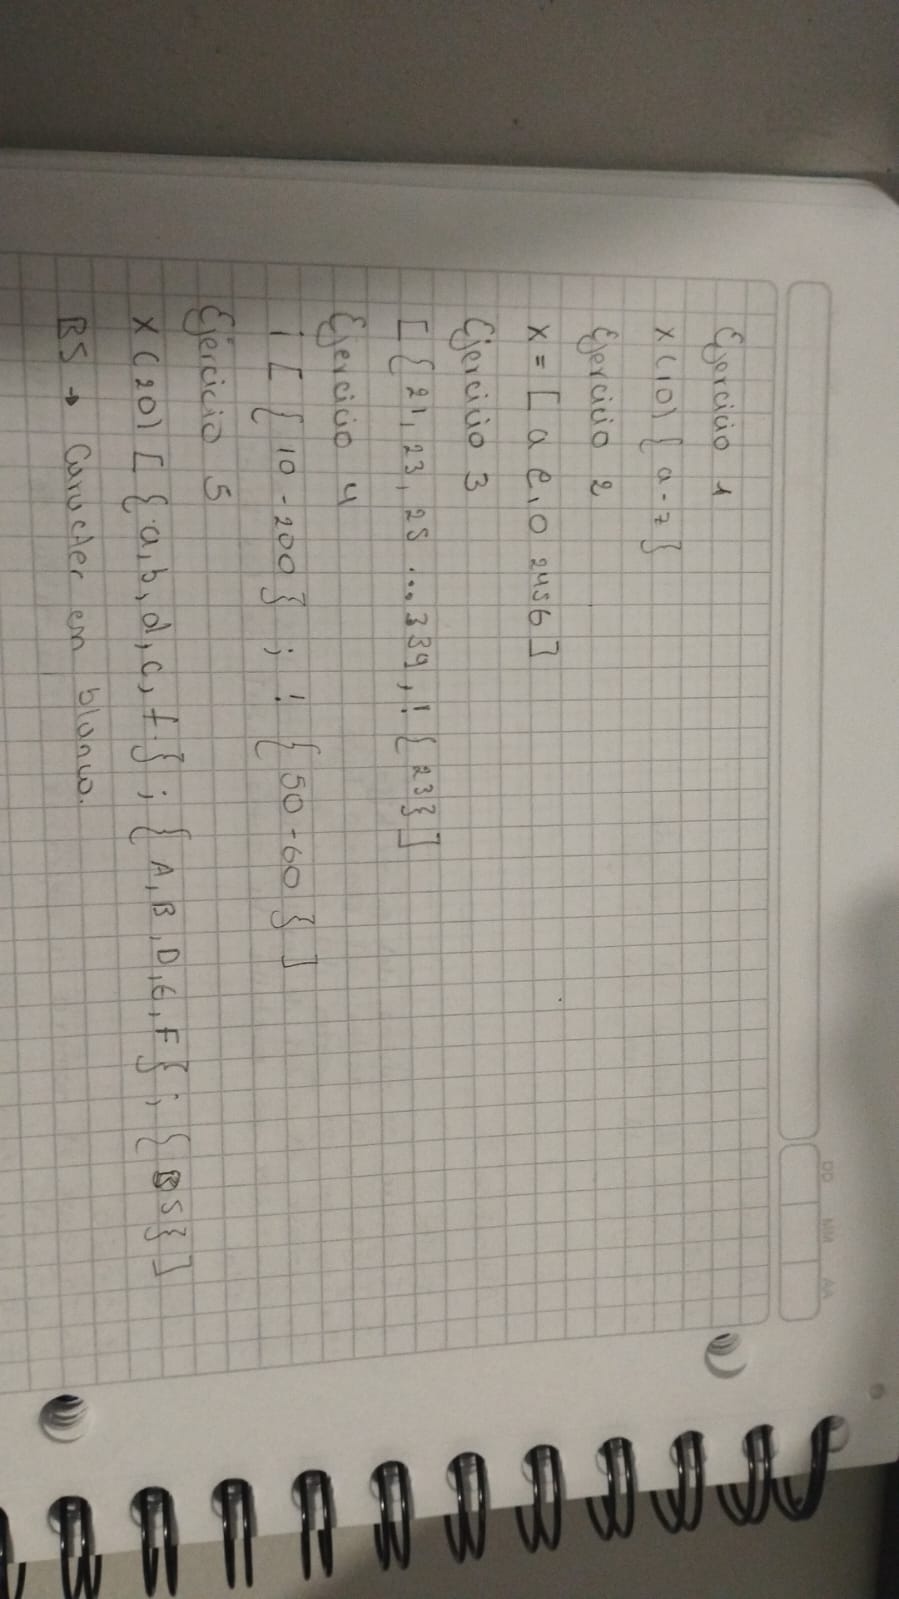 DD MM AA
Ejercicio 1
X(10){a-z}
Ejercicio 2
X=[a e,o 2456]
Ejercicio 3
[{21,23,25...339,!{23}]
Ejercicio 4
i[{10-200};!{50-60}]
Ejercicio 5
X(20)[{a,b,d,c,f.};{A,B,D,E,F};{BS}]
BS → Caracter en blanco.